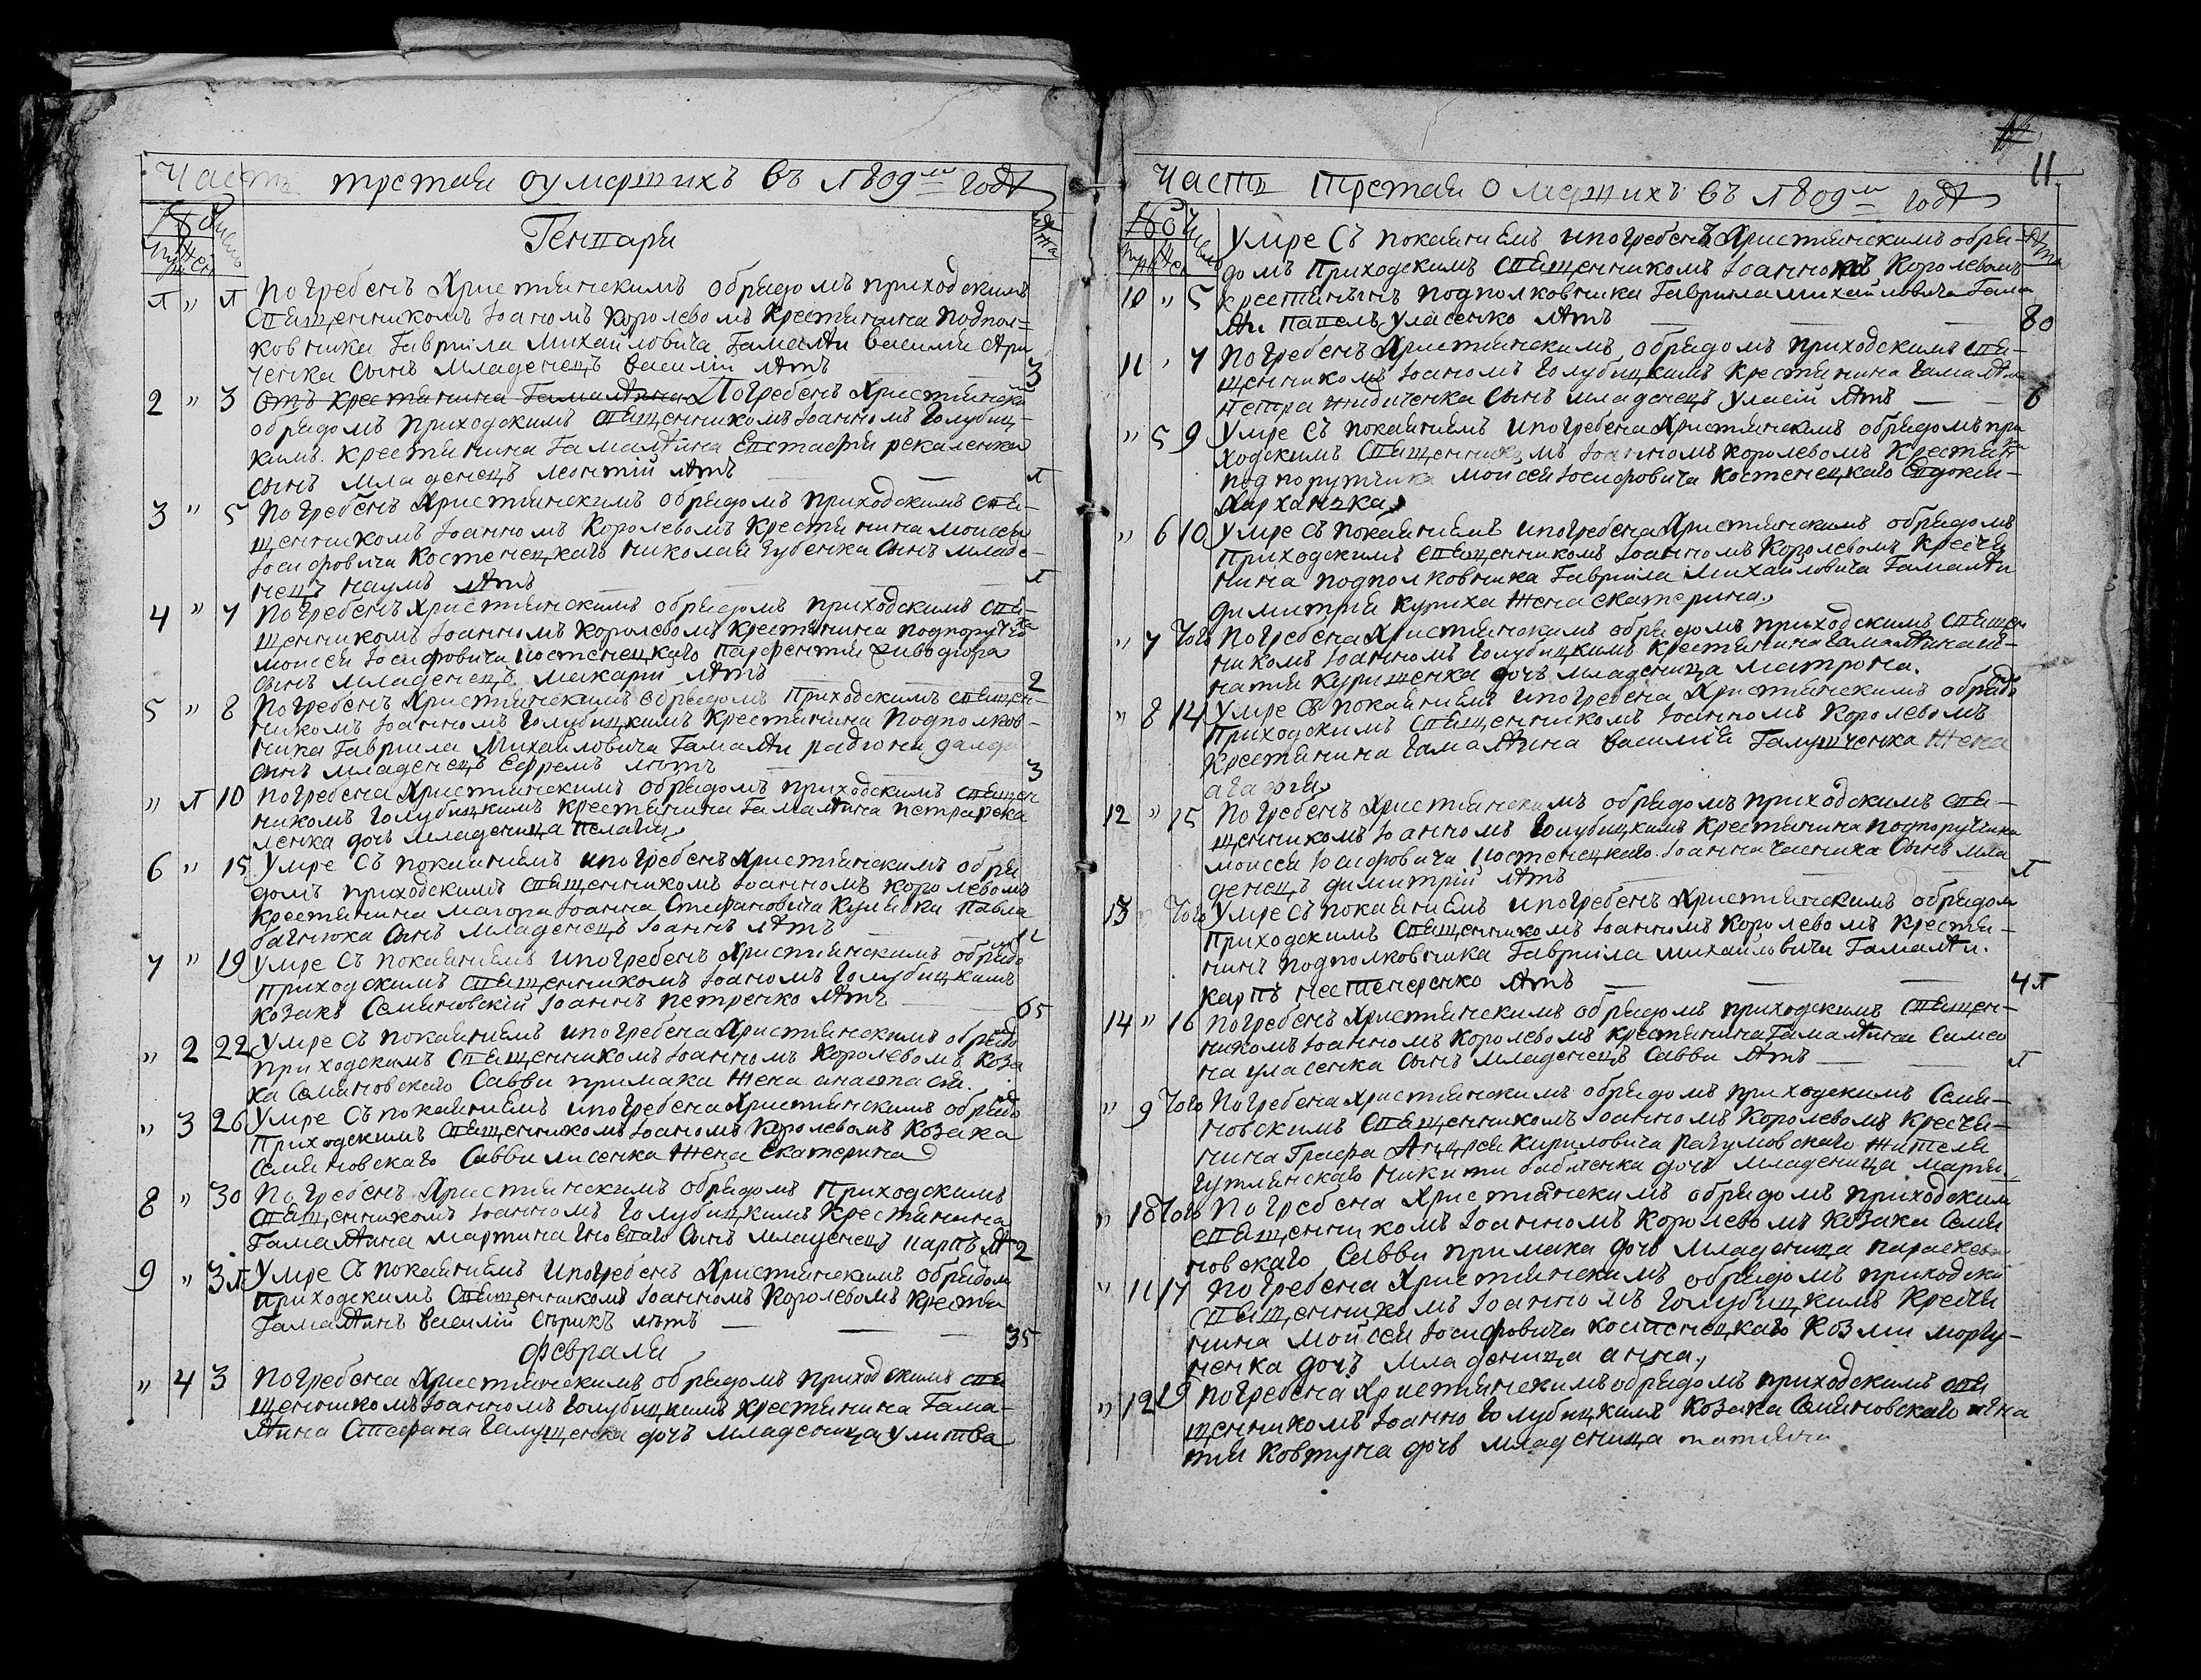 Часть третая оумершихъ въ 1809м годѣ
Генваря
лѣта
1 " 1 Погребенъ Христіянскимъ обрядомъ приходскимъ
священникомъ Іоаномъ Королевомъ Крестянина Подпол=
ковника Гавриіла Михайловича Гамалѣи василия
ченка Сынъ младенецъ василій лѣтъ 3
2 " 3 Отъ крестянина Гамалѣина Погребенъ Христіянски
обрядомъ приходскимъ священникомъ Іоанномъ Голубиц-
кимъ крестянина Гамалѣина Евстафия рекаленка
сынъ младенецъ леонтій лѣтъ 1
3 " 5 Погребенъ Христіянскимъ обрядомъ приходскимъ свя-
щенникомъ Іоанномъ Королевомъ Крестянина моисея
Іосифовича Костенецкаго николая губенка Сынъ младе-
нецъ наумъ лѣтъ 1
4 " 7 Погребенъ Христіянскимъ обрядомъ приходскимъ свя-
щенникомъ Іоанномъ Королевомъ Крестянина подпоручика
моисея Іосифовича Костенецкаго Парфентия
сынъ младенецъ макарій лѣтъ 2
5 " 8 Погребенъ Христіянскимъ обрядомъ Приходскимъ священ-
никомъ Іоанномъ Голубицкимъ Крестянина Подполков-
ника Гавриила Михайловича Гамалѣи радиона далда
сынъ младенецъ Ефремъ лѣтъ 3
" 1 10 погребена Христіянскимъ обрядомъ приходскимъ священ
никомъ Голубицкимъ крестянина Гамалѣина петра река
ленка дочъ младеница пелагия
6 " 15 Умре Съ покаяниемъ ипогребенъ Христіянскимъ обря
домъ приходскимъ священникомъ Іоанномъ Королевомъ
Крестянина маиора Іоанна Стефановича Кулябки Павла
Сынъ младенецъ Іоаннъ лѣтъ 12
7 " 19 Умре Съ покаяниемъ ипогребенъ Христіянскимъ обрядо
приходскимъ священникомъ Іоаномъ Голубицкимъ
козакъ Семяновскій Іоаннъ петренко лѣтъ 65
" 2 22 Умре Съ покаяниемъ ипогребена Христіянскимъ обрядо
приходскимъ священникомъ Іоанномъ Королевомъ Коза
ка Семяновскаго Савви примака жена анастасия.
" 3 26 Умре Съ покаяниемъ ипогребена Христіянскимъ обрядо
Приходскимъ священникомъ Іоаномъ Королевомъ Козака
Семяновскаго Савви лисенка жена Екатерина
8 " 30 Погребенъ Христіянскимъ обрядомъ Приходскимъ
священникомъ Іоанномъ Голубицкимъ Крестянина
Гамалѣина мартина гноеваго Сынъ младенецъ карпъ лѣ 2
9 " 31 Умре Съ покаяниемъ ипогребенъ Христіянскимъ обрядом
Приходскимъ священникомъ Іоанномъ Королевомъ крестя
Гамалѣинъ василій сѣрикъ лѣтъ 35
февраля
" 4 3 Погребена Христіянскимъ обрядомъ приходскимъ свя
щенникомъ Іоанномъ Голубицкимъ крестянина Гама-
лѣина Стефана Галущенка дочъ младеница улитва
11
Часть Третая о мершихъ въ 1809м годѣ
лѣта
Умре Съ покаяниемъ ипогребенъ Христіянскимъ обря-
домъ Приходскимъ священникомъ Іоанномъ Королевомъ
10 " 5 крестянинъ подполковника Гавриіла михайловича Гама
лѣи Павелъ уласенко лѣтъ 80
11 " 7 Погребенъ Христіянскимъ обрядомъ приходскимъ свя-
щенникомъ Іоаномъ Голубицкимъ Крестянина Гамалѣина
петра Сынъ младенецъ уласій лѣтъ 6
" 5 9 Умре Съ покаяниемъ ипогребена Христіянскимъ обрядомъ при
ходскимъ священникомъ Іоанномъ Королевомъ Крестянка
подпоручика моисея Іосифовича Костенецкаго Евдокия
Харханька
" 6 10 Умре Съ покаяниемъ ипогребена Христіянскимъ обрядомъ
Приходскимъ священникомъ Іоанномъ Королевомъ Крестя
нина подполковника Гавриіла Михайловича Гамалѣи
димитрия куриха жена екатерина
" 7 Того Погребена Христіянскимъ обрядомъ приходскимъ священ
никомъ Іоанномъ Голубицкимъ Крестянина Гамалѣина иг-
натия Куришенка дочъ младеница матрона.
" 8 14 Умре Съ покаяниемъ ипогребена Христіянскимъ обрядо
Приходскимъ священникомъ Іоанномъ Королевомъ
Крестянина Гамалѣина василия Галущенка жена
агафия
12 " 15 Погребенъ Христіянскимъ обрядомъ приходскимъ свя-
щенникомъ Іоанномъ Голубицкимъ крестянина подпоручика
моисея Іосифовича Костенецкаго Іоанна часника Сынъ мла
денецъ димитрій лѣтъ 1
13 Того Умре Съ покаяниемъ ипогребенъ Христіянскимъ обрядом
Приходскимъ священникомъ Іоанномъ Королевомъ Крестя-
нинъ подполковника Гавриіла михайловича Гамалѣи.
карпъ нестеренко лѣтъ 41
14 " 16 Погребенъ Христіянскимъ обрядомъ приходскимъ священ-
никомъ Іоанномъ Королевомъ крестянина Гамалѣина Симео
на уласенка Сынъ младенецъ Савва лѣтъ 1
" 9 Того Погребена Христіянскимъ обрядомъ приходскимъ Семя-
новскимъ священникомъ Іоанномъ Королевомъ Крестя-
нина Графа Андрея Кириловича Разумовскаго жителя
никити бабиченка дочъ младеница мария
" 10 Того Погребена Христіянскимъ обрядомъ приходским
священникомъ Іоанномъ Королевомъ козака Семя
новскаго Савви примака дочъ младеница параскева
" 11 17 погребена Христіянскимъ обрядомъ приходски
священникомъ Іоанномъ Голубицкимъ Крестя
нина Мойсея Іосифовича костенецкаго Козми моргу-
ненка дочъ младеница анна,
" 12 19 погребена Христіянскимъ обрядомъ приходскимъ свя
щенникомъ Іоанно Голубицкимъ Козака Семяновскаго игна
тия Ковтуна дочъ младеница татияна